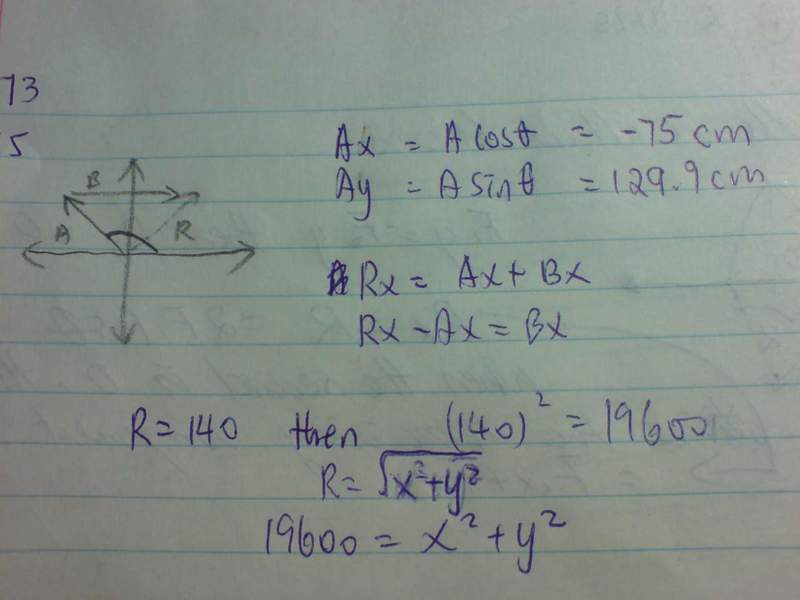 73
5
B
A
R
Ax = A cosθ = -75 cm
Ay = A sinθ = 129.9 cm
Rx = Ax + Bx
Rx - Ax = Bx
R = 140 then (140)² = 19600
R = √x²+y²
19600 = x² + y²